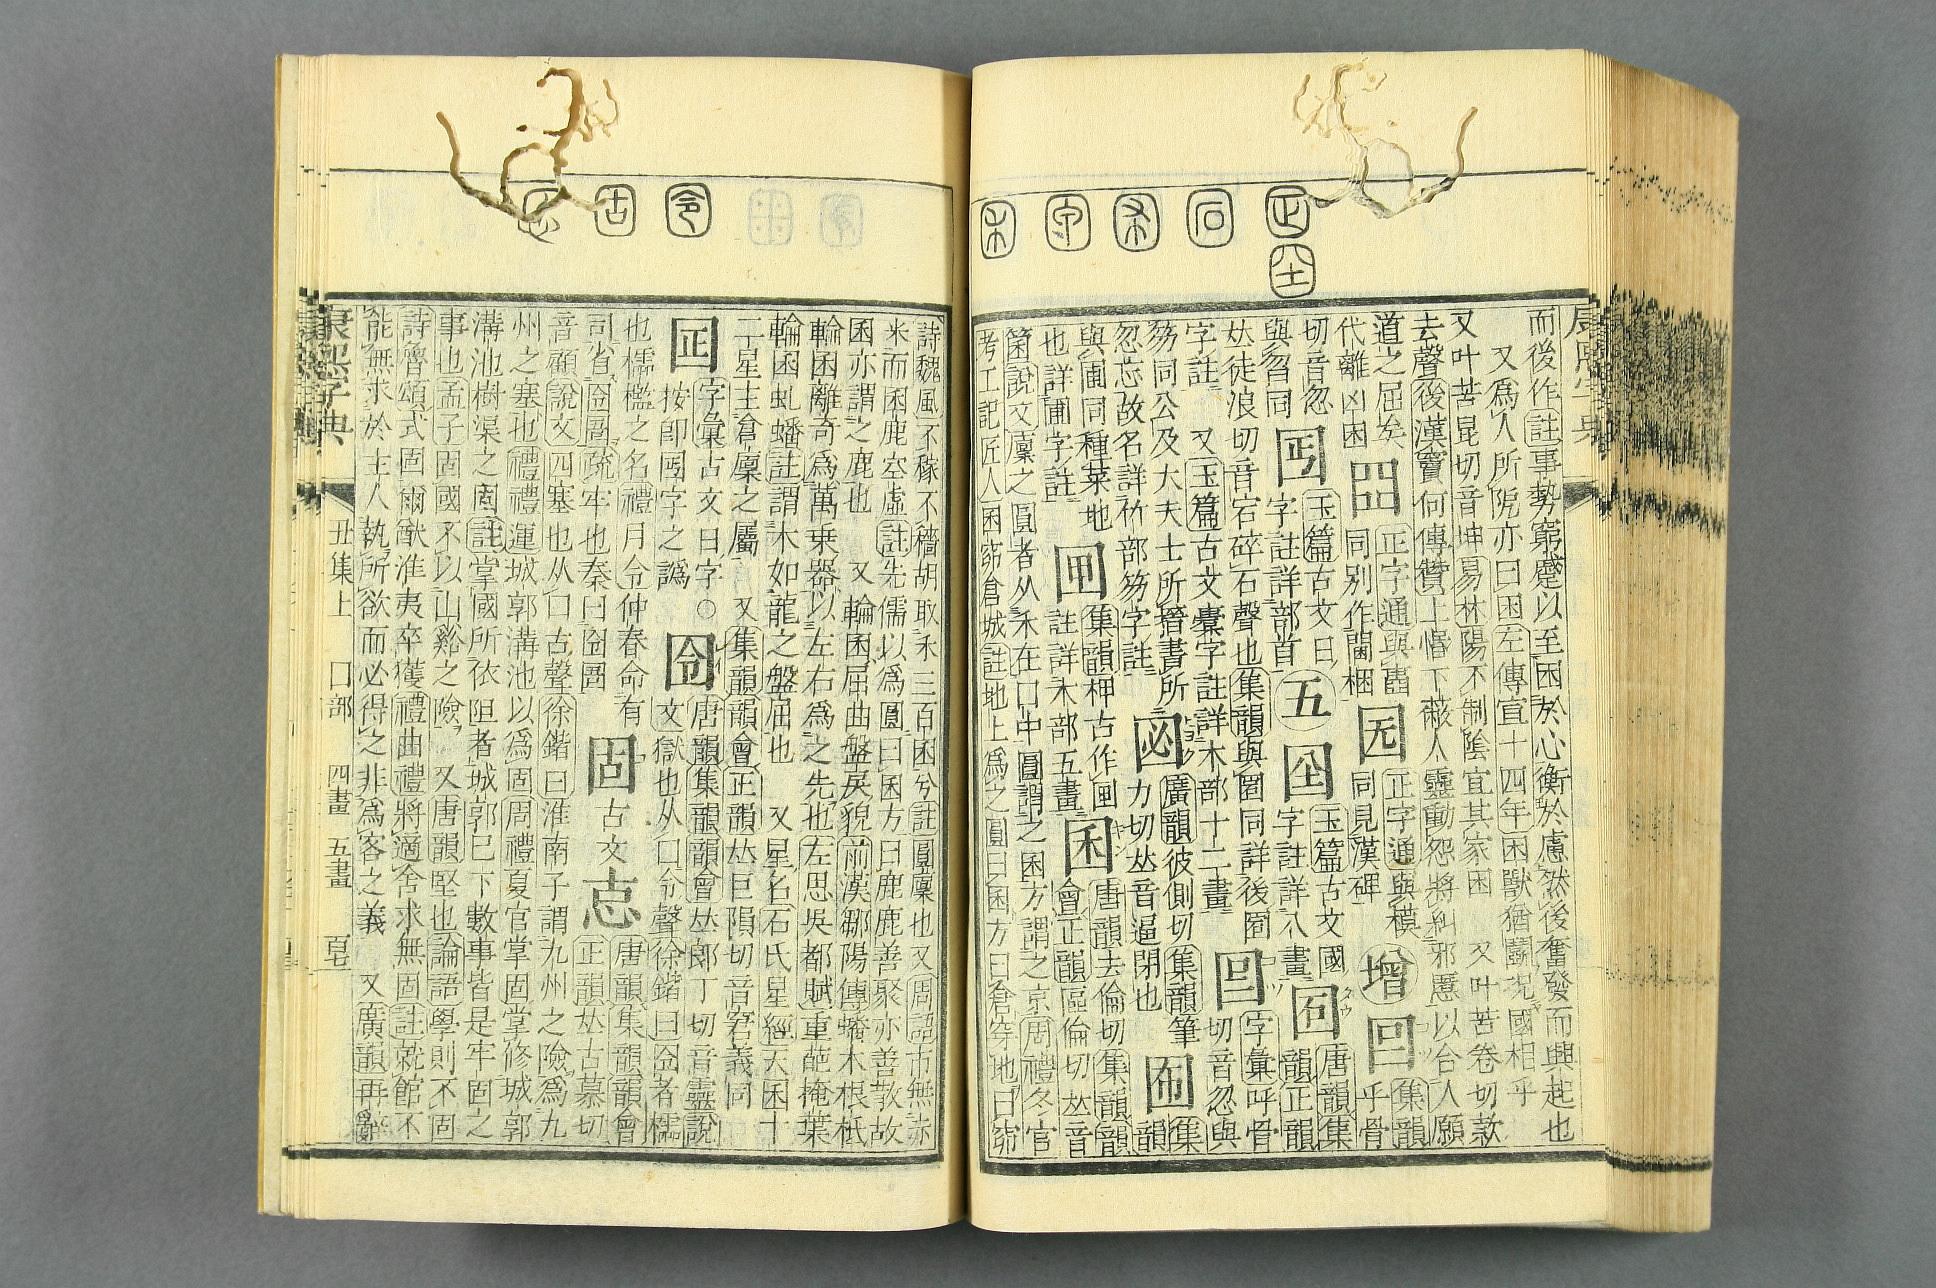 而後作註事勢窮蹙以至困於心衡於慮然後奮發而興起也
又爲人所阨亦曰困左傳宣十四年困獸猶鬭況國相乎
又叶苦昆切音坤易林陽不制陰宜其家困 又叶苦卷切款
去聲後漢竇何傳贊上惛下嬖人靈動怨將糾邪慝以合人願
道之屈矣
代離凶困
正字通與齒
同別作
梱
正字通與模
同見漢碑
增
囙 集韻
呼骨
切音忽
與曶同
玉篇古文日
字註詳部首
五
玉篇古文國
字註詳八畫
唐韻集
韻正韻
𠀤徒浪切音宕碎石聲也集韻與圀同詳後圀
字註 又玉篇古文橐字註詳木部十二畫
字彙呼骨
切音忽與
笏同公及大夫士所搢書所
忽忘故名詳竹部笏字註
廣韻彼側切集韻筆
力切𠀤音逼閉也
集
韻
與圃同種菜地
也詳圃字註
集韻柙古作
註詳木部五畫
囷
唐韻去倫切集韻韻
會正韻區倫切𠀤音
箘說文廩之圓者从禾在囗中圓謂之囷方謂之京周禮冬官
考工記匠人囷窌倉城註地上爲之圓曰囷方曰倉穿地曰窌
詩魏風不稼不穡胡取禾三百囷兮註圓廩也又周語市無赤
米而囷鹿空虛註先儒以爲圓曰囷方曰鹿鹿善聚亦善散故
囷亦謂之鹿也 又輪囷屈曲盤戾貌前漢鄒陽傳蟠木根柢
輪囷離奇爲萬乗器以左右爲之先也左思吳都賦重葩掩葉
輪囷虬蟠註謂木如龍之盤屈也 又星名石氏星經天囷十
二星主倉廩之屬 又集韻韻會正韻𠀤巨隕切音窘義同
字彙古文日字○
按卽囸字之譌
囹
唐韻集韻韻會𠀤郎丁切音靈說
文獄也从囗令聲徐鍇曰囹者櫺
也櫺檻之名禮月令仲春命有
司省囹圄疏牢也秦曰囹圄
固
古文
唐韻集韻韻會
正韻𠀤古慕切
音顧說文四塞也从囗古聲徐鍇曰淮南子謂九州之險爲九
州之塞也禮禮運城郭溝池以爲固周禮夏官掌固掌修城郭
溝池樹渠之固註掌國所依阻者城郭巳下數事皆是牢固之
事也孟子固國不以山谿之險 又唐韻堅也論語學則不固
詩魯頌式固爾猷淮夷卒獲禮曲禮將適舍求無固註就館不
能無求於主人執所欲而必得之非爲客之義 又廣韻再辭
康熙字典 丑集上 囗部 四畫 五畫